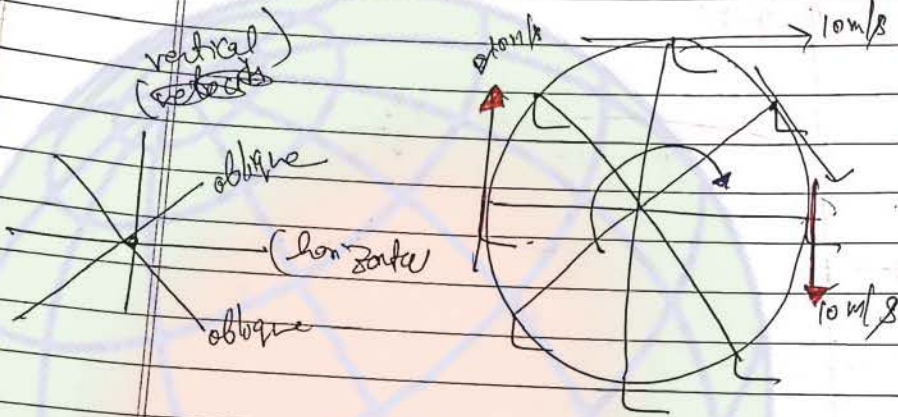 vertical)
(
oblique
(horizontal
oblique
10m/s
10m/s
10m/s